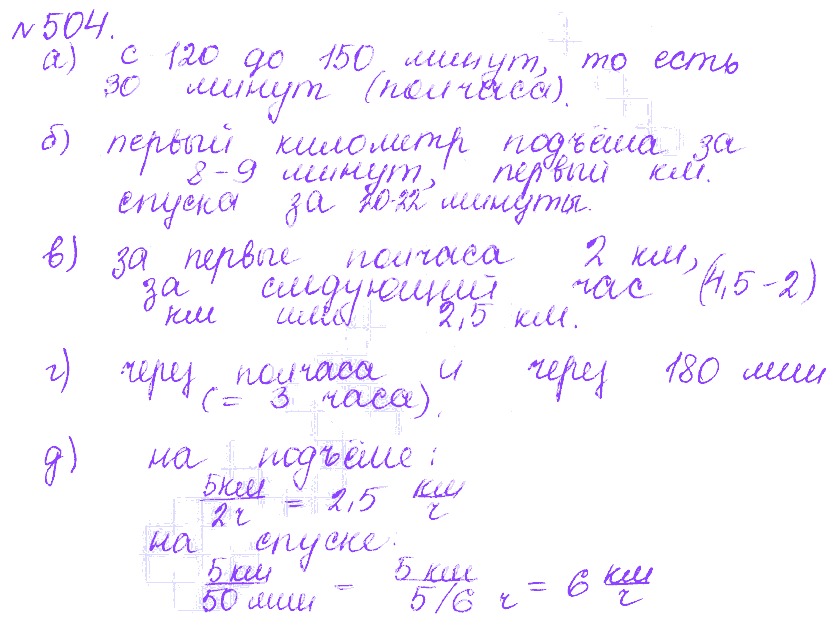 №504.
а) с 120 до 150 минут, то есть
30 минут (полчаса).
б) первый километр подъёма за
8-9 минут, первый км.
спуска за 20-22 минуты.
в) за первые полчаса 2 км,
за следующий час (4,5-2)
км или 2,5 км.
г) через полчаса и через 180 мин
(= 3 часа).
д) на подъёме:
5км/2ч = 2,5 км/ч
на спуске:
5 км/50 мин = 5 км/5/6 ч = 6 км/ч